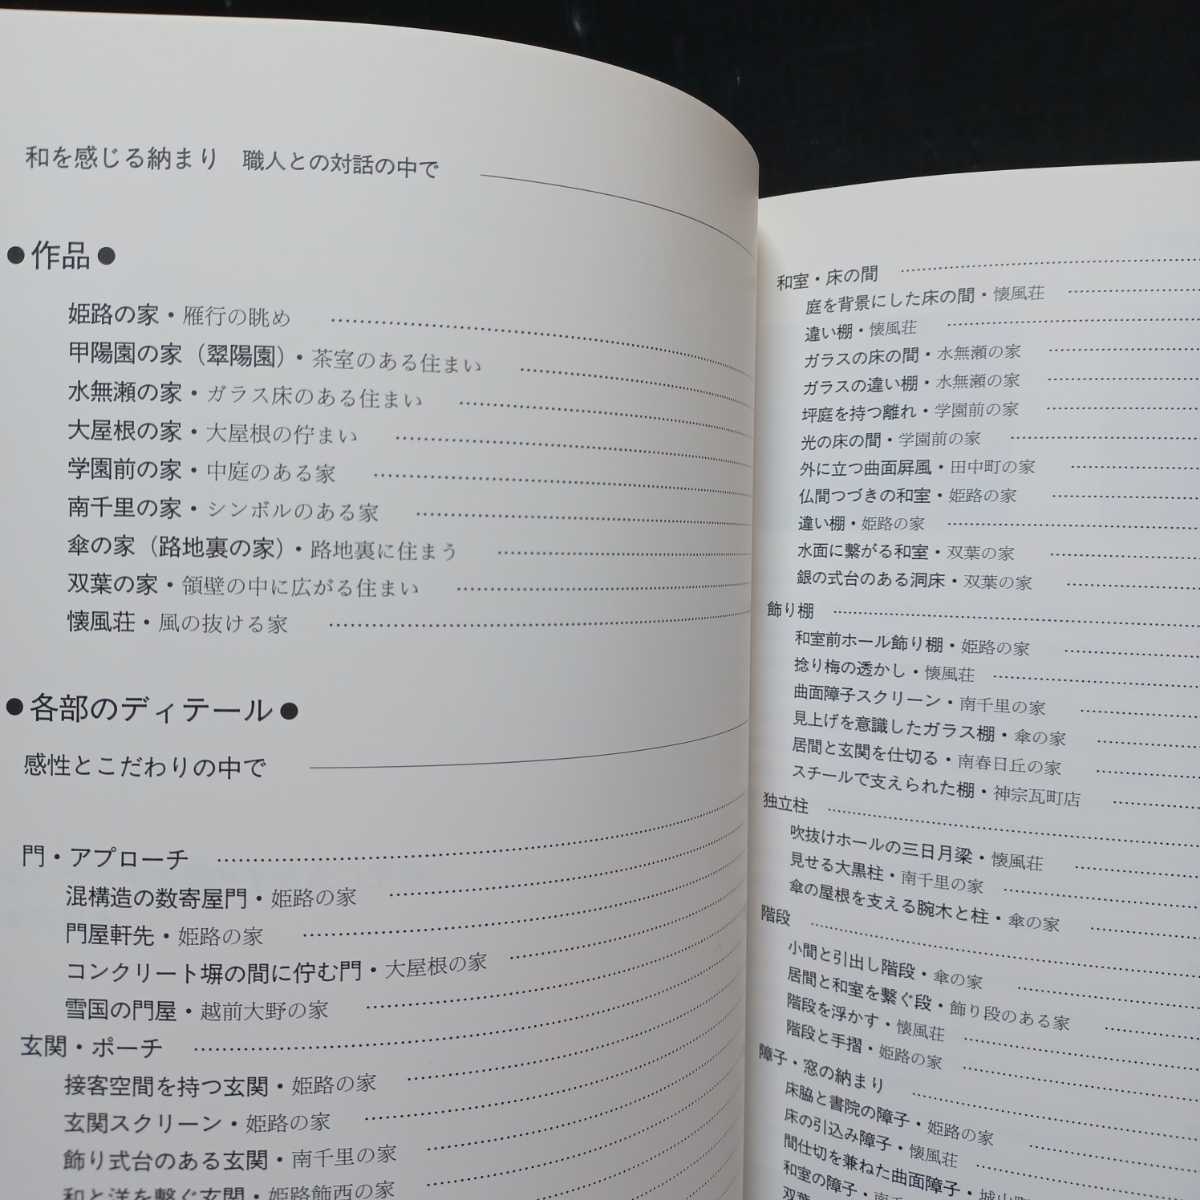 和を感じる納まり　職人との対話の中で
●作品●
姫路の家・雁行の眺め
甲陽園の家（翠陽園）・茶室のある住まい
水無瀬の家・ガラス床のある住まい
大屋根の家・大屋根の佇まい
学園前の家・中庭のある家
南千里の家・シンボルのある家
傘の家（路地裏の家）・路地裏に住まう
双葉の家・領壁の中に広がる住まい
懐風荘・風の抜ける家
●各部のディテール●
感性とこだわりの中で
門・アプローチ
混構造の数寄屋門・姫路の家
門屋軒先・姫路の家
コンクリート塀の間に佇む門・大屋根の家
雪国の門屋・越前大野の家
玄関・ポーチ
接客空間を持つ玄関・姫路の家
玄関スクリーン・姫路の家
飾り式台のある玄関・南千里の家
和と洋を繋ぐ玄関・姫路飾西の家
和室・床の間
庭を背景にした床の間・懐風荘
違い棚・懐風荘
ガラスの床の間・水無瀬の家
ガラスの違い棚・水無瀬の家
坪庭を持つ離れ・学園前の家
光の床の間・学園前の家
外に立つ曲面屏風・田中町の家
仏間つづきの和室・姫路の家
違い棚・姫路の家
水面に繋がる和室・双葉の家
銀の式台のある洞床・双葉の家
飾り棚
和室前ホール飾り棚・姫路の家
捻り梅の透かし・懐風荘
曲面障子スクリーン・南千里の家
見上げを意識したガラス棚・傘の家
居間と玄関を仕切る・南春日丘の家
スチールで支えられた棚・神宗瓦町店
独立柱
吹抜けホールの三日月梁・懐風荘
見せる大黒柱・南千里の家
傘の屋根を支える腕木と柱・傘の家
階段
小間と引出し階段・傘の家
居間と和室を繋ぐ段・飾り段のある家
階段を浮かす・懐風荘
階段と手摺・姫路の家
障子・窓の納まり
床脇と書院の障子・姫路の家
床の引込み障子・懐風荘
間仕切を兼ねた曲面障子・城山
和室の障子・南千
双葉